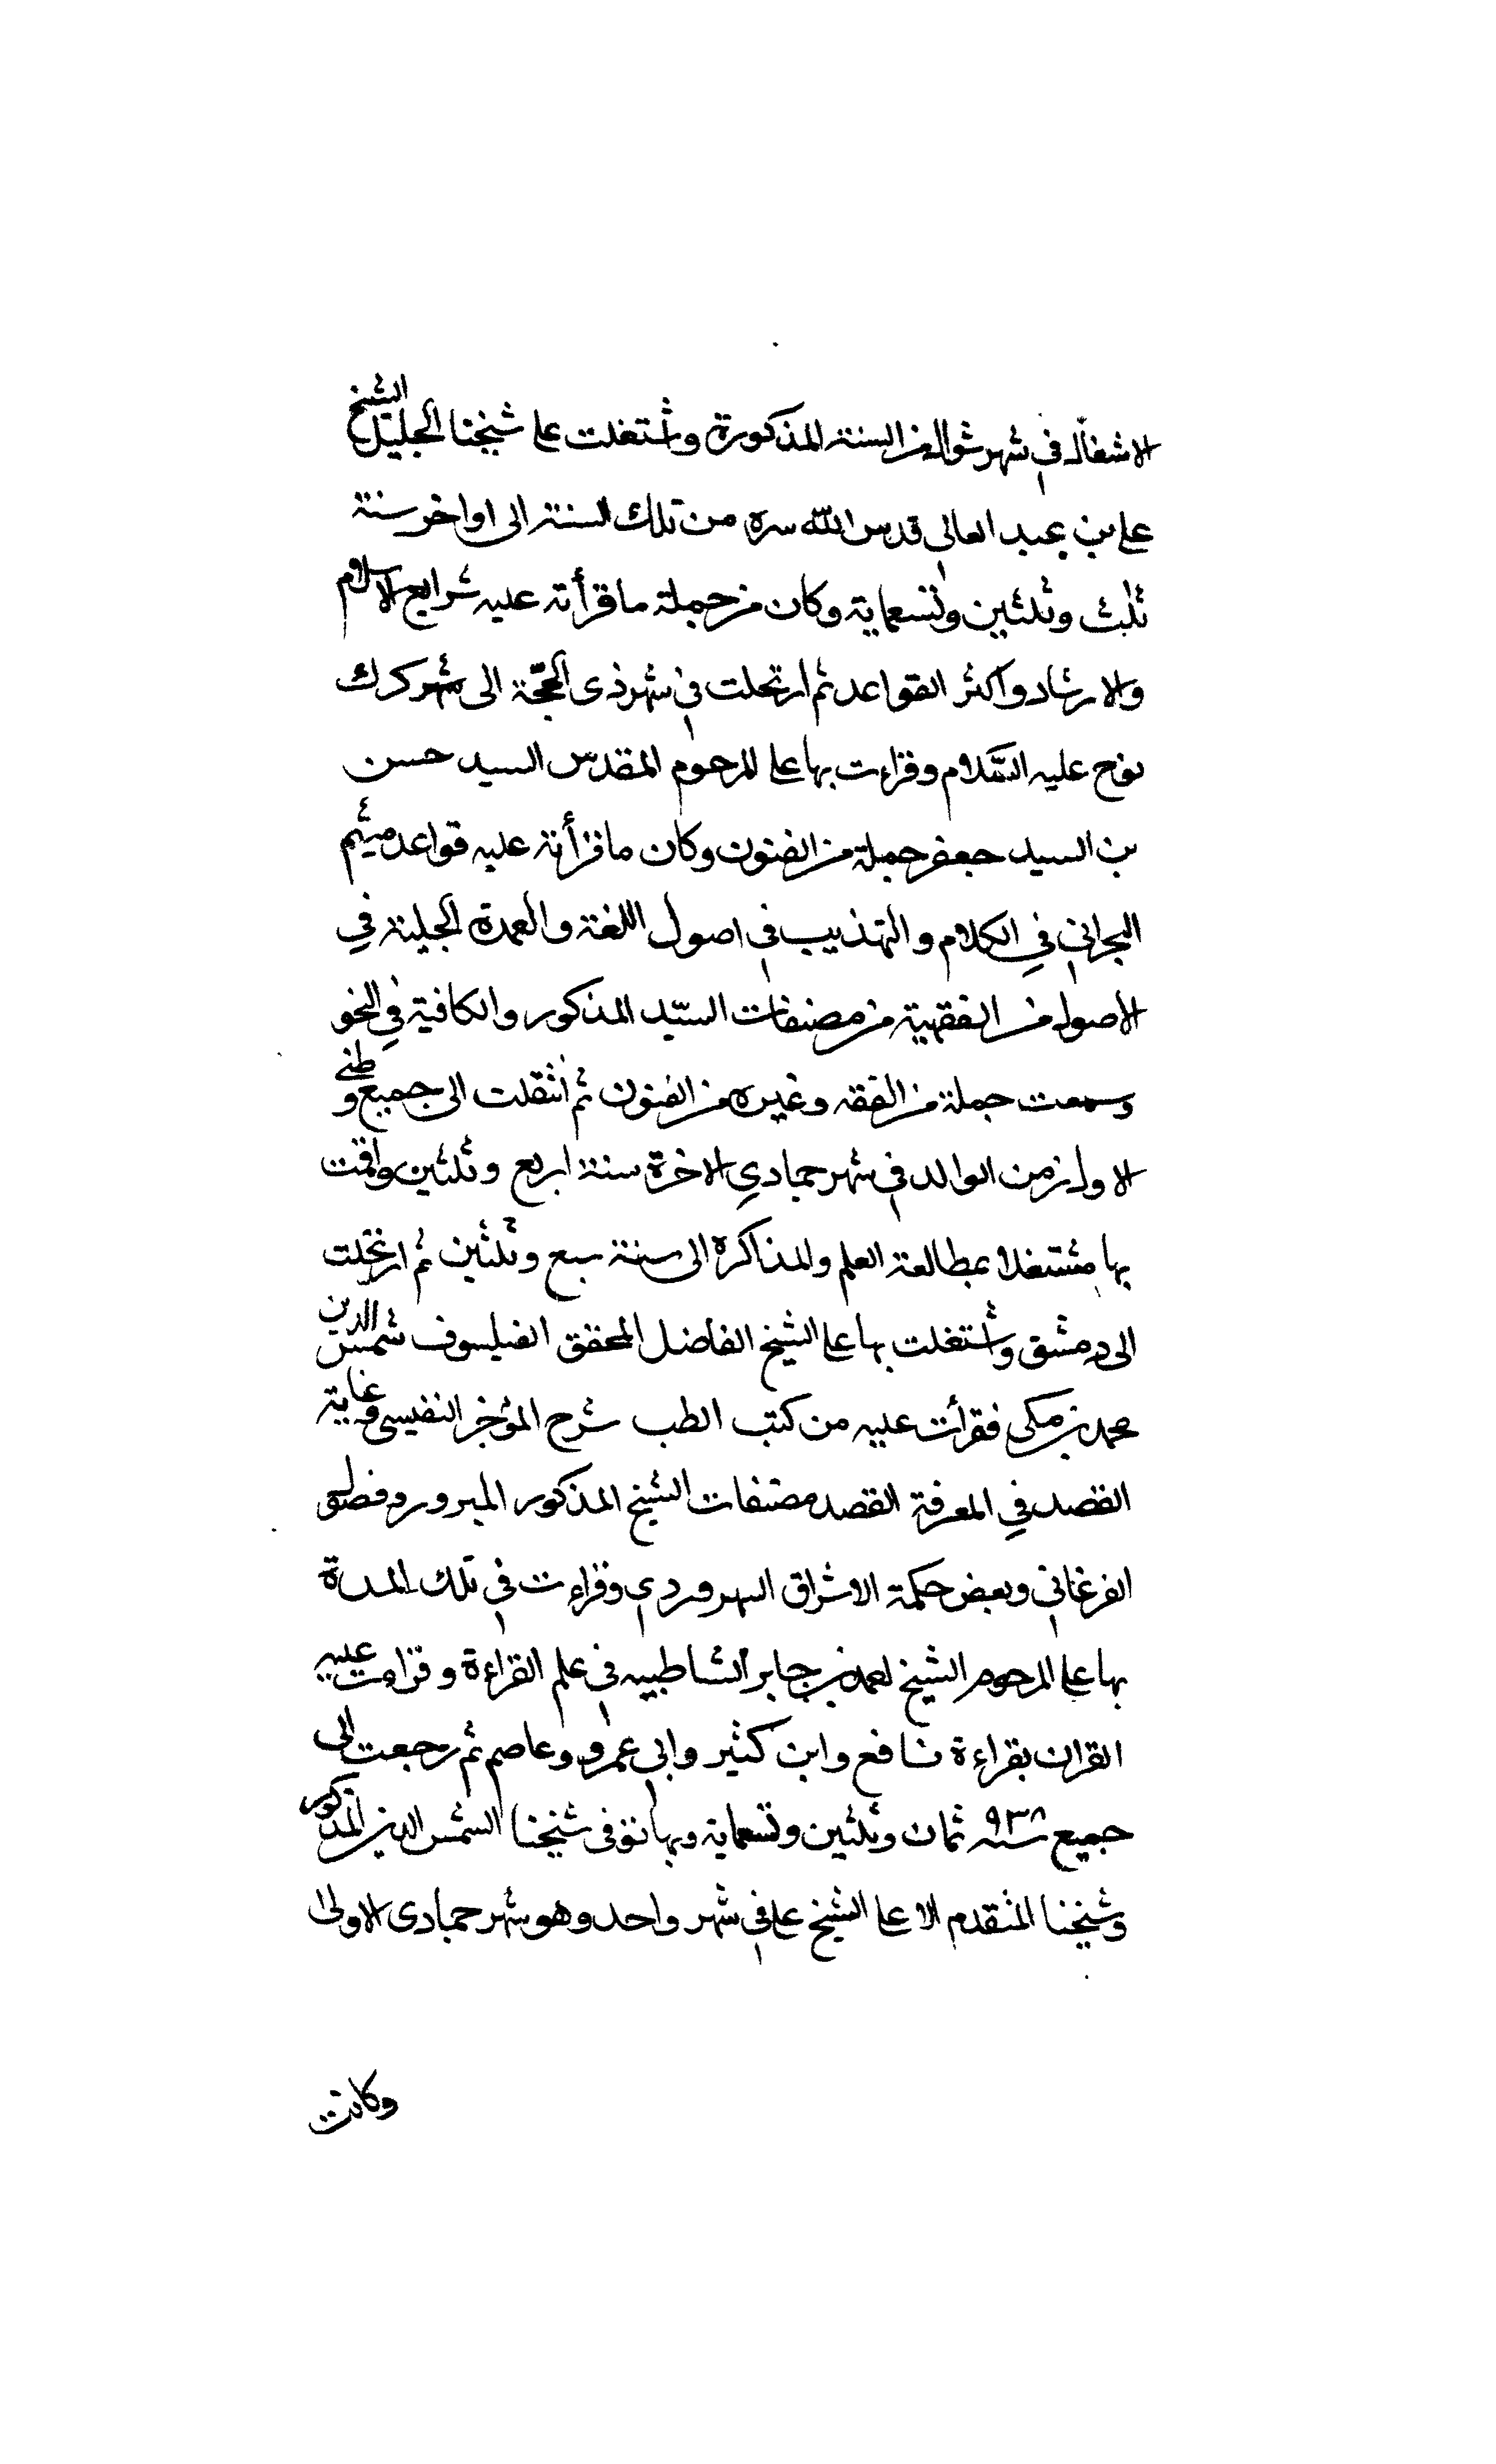 الاشغال فى شهر شوال من السنة المذكورة واشتغلت على شيخنا الجليل الشيخ
على بن عبد العالى قدس الله سره من تلك السنة الى اواخر سنة
ثلث وثلثين وتسعماية وكان من جملة ما قرأته عليه شرايع الاسلام
والارشاد واكثر القواعد ثم ارتحلت فى شهر ذى الحجّة الى شهر كرك
نوح عليه السّلام وقراءت بها على المرحوم المقدس السيد حسن
بن السيد جعفر جملة من الفنون وكان ما قرأته عليه قواعد ميثم
البحرانى فى الكلام والتهذيب فى اصول اللغة والعمدة الجلية فى
الاصول من الفقهية من مصنفات السيّد المذكور والكافية فى النحو
وسمعت جملة من الفقه وغيره من الفنون ثم انتقلت الى جميع وطنى
الاول زمن الوالد فى شهر جمادى الاخرة سنة اربع وثلثين واقمت
بها مشتغلا بمطالعة العلم والمذاكرة الى سنة سبع وثلثين ثم ارتحلت
الى دمشق واشتغلت بها على الشيخ الفاضل المحقق الفيلسوف شمس الدين
محمد بن مكى فقرأت عليه من كتب الطب شرح المؤجز النفيسى وغاية
القصد فى المعرفة القصد مصنفات الشيخ المذكور المبرور وفصول
الفرغانى وبعض حكمة الاشراق السهروردى وقراءت فى تلك المدة
بها على المرحوم الشيخ احمد بن جابر الشاطبيه فى علم القراءة وقراءت عليه
القران بقراءة نافع وابن كثير وابى عمرو وعاصم ثم رجعت الى
جميع سنه ٩٣٨ ثمان وثلثين وتسعماية وبها توفى شيخنا الشمس الدين المذكور
وشيخنا المتقدم الاعلى الشيخ على فى شهر واحد وهو شهر جمادى الاولى
وكانت